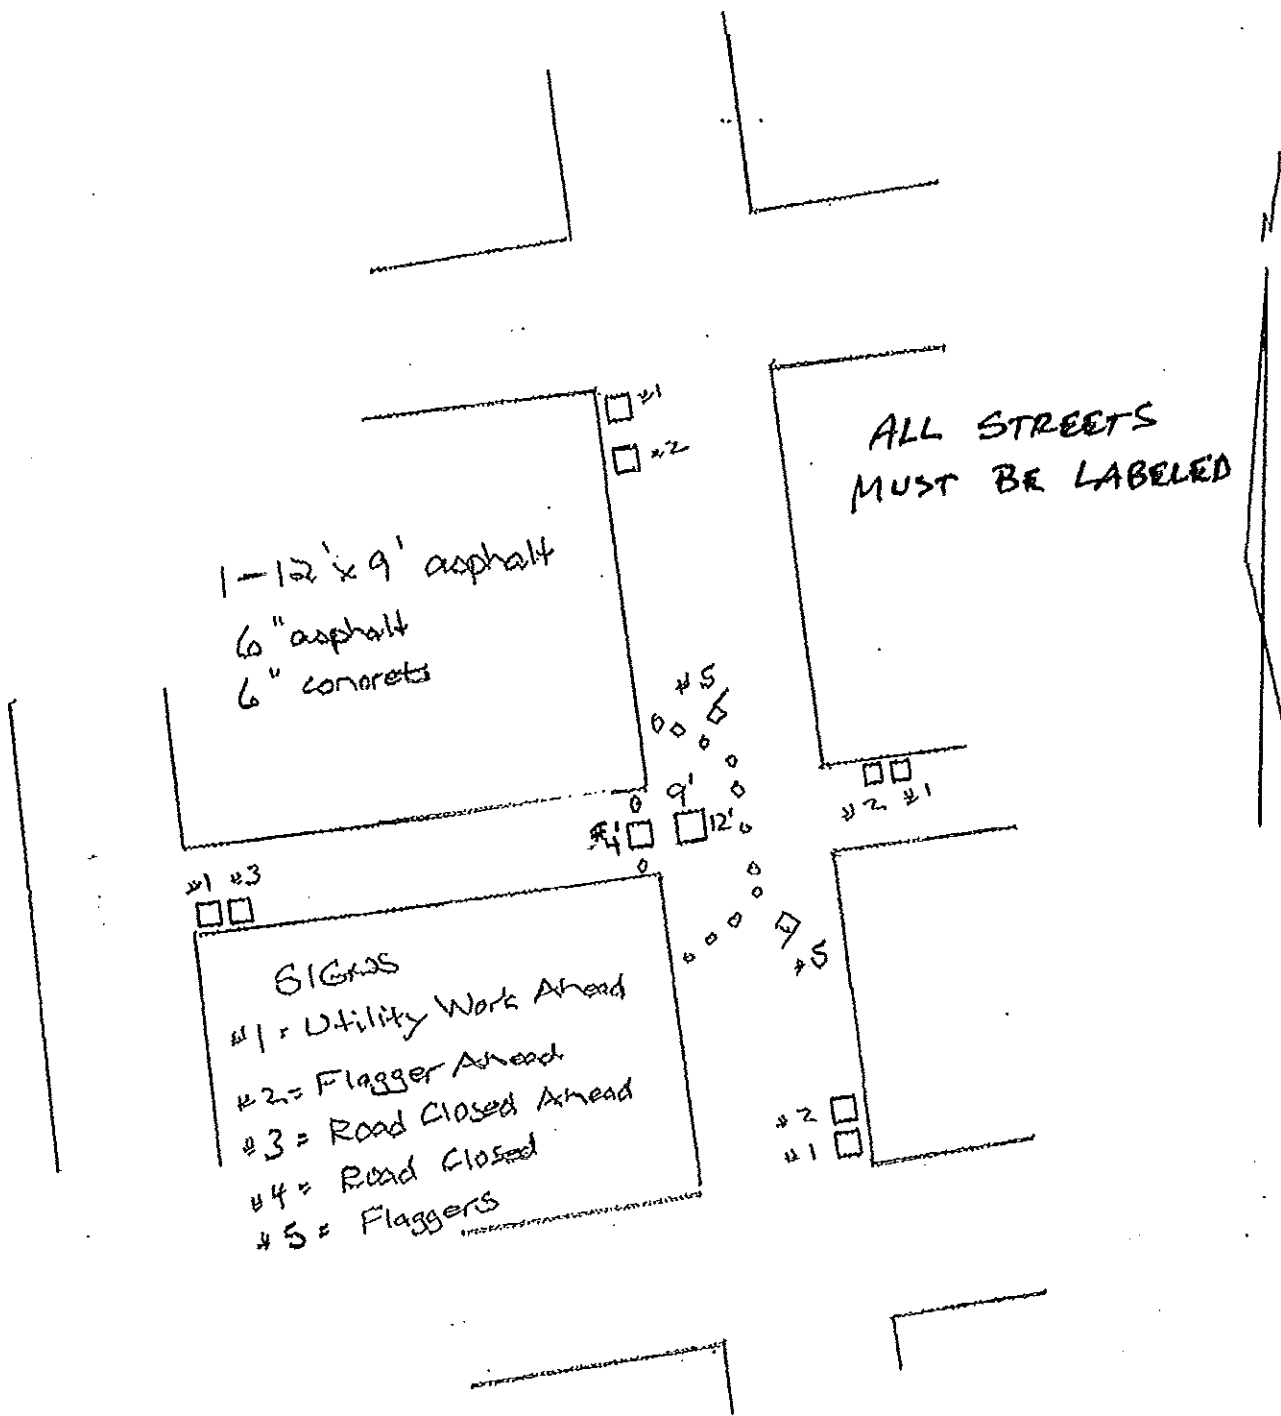 #1
#2
ALL STREETS
MUST BE LABELED
1-12'x9' asphalt
6" asphalt
6" concrets
#5
9'
#4
12'
#2 #1
#1 #3
#5
SIGNS
#1 = Utility Work Ahead
#2 = Flagger Ahead
#3 = Road Closed Ahead
#4 = Road Closed
#5 = Flaggers
#2
#1